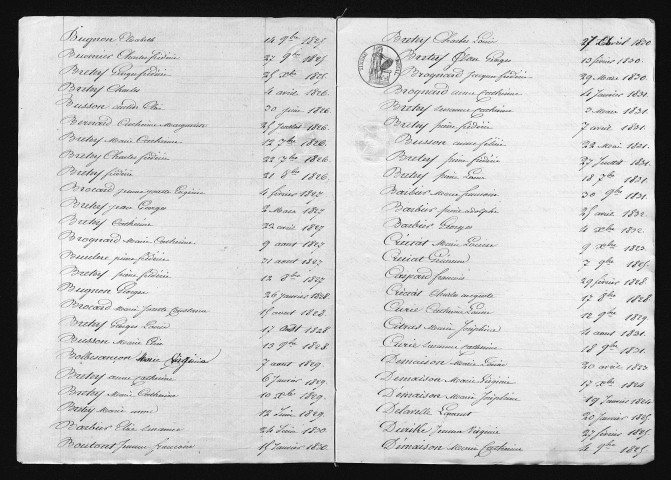 Bugnon Elisabeth 14 9bre 1825
Charles frédéric 27 9bre 1825
Bretey Georges frédéric 25 Xbre 1825
Bretey Charles 4 avril 1826
Busson 30 juin 1826
Bernard Catherine Marguerite 25 Juillet 1826
Bretey Marie Catherine 12 7bre 1826
Bretey Charles frédéric 22 7bre 1826
Bretey frédéric 21 8bre 1826
Brocard Eugénie 4 février 1827
Bretey Jean Georges 2 Mars 1827
Bretey Catherine 22 avril 1827
Brognard Marie Catherine 9 aout 1827
pierre frédéric 21 aout 1827
Bretey pierre frédéric 12 8bre 1827
Bugnon George 26 janvier 1828
Brocard Marie 15 aout 1828
Bretey Georges Louis 17 aout 1828
Busson Marie 13 9bre 1828
Marie Virginie 7 aout 1829
Bretey anne catherine 6 Janvier 1829
Bretey Marie Catherine 10 Xbre 1829
Bretey Marie anne 12 Juin 1829
Barbier Elise Suzanne 24 Juin 1830
Boutont Jeanne francoise 15 Janvier 1830
Bretey Charles Louis 27 avril 1830
Bretey Jean Georges 13 février 1830
Brognard Jacques frédéric 29 Mars 1830
Brognard anne Catherine 4 Janvier 1831
Bretey Suzanne Catherine 3 Mars 1831
Bretey pierre frédéric 7 avril 1831
Busson anne 22 Mai 1831
Bretey pierre frédéric 27 Juillet 1831
Bretey pierre Louis 18 7bre 1831
Barbier Marie francoise 30 9bre 1831
Barbier pierre adolphe 25 avril 1832
Barbier Georges 4 Xbre 1832
Marie Louise 9 Xbre 1823
7 9bre 1825
Gaspard francois 29 février 1828
Charles auguste 17 8bre 1828
Curie Catherine Louise 12 9bre 1829
Marie Joséphine 4 aout 1831
Curie Suzanne Catherine 18 9bre 1831
Demaison Marie Louise 20 avril 1823
Demaison Marie Virginie 17 Xbre 1824
Demaison Marie Joséphine 19 Janvier 1824
Delavelle 20 Janvier 1825
Jeanne Virginie 27 février 1825
Demaison Marie Catherine 4 9bre 1825